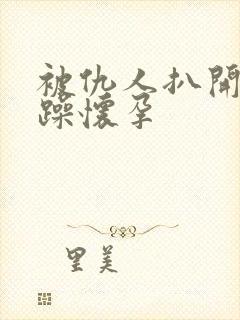 被仇人扒開
躁懷孕
里美